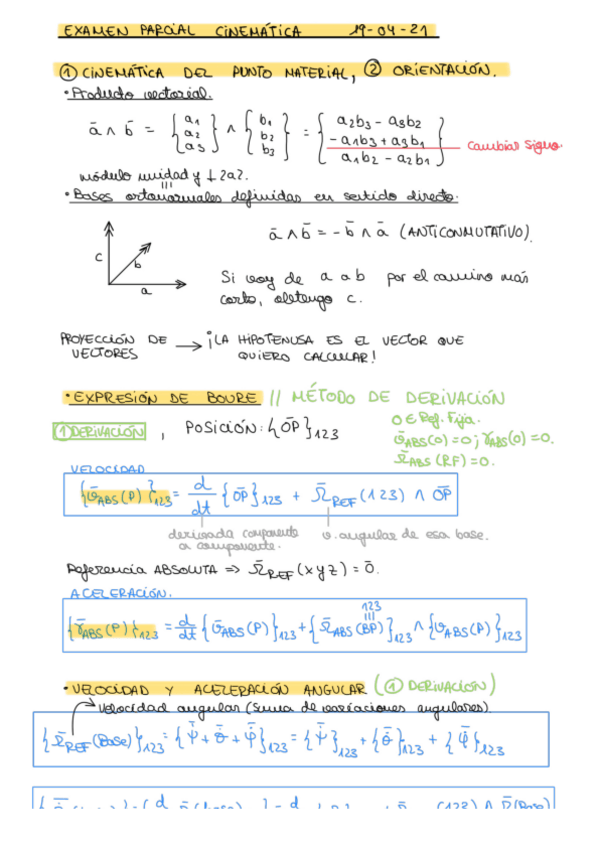 EXAMEN PARCIAL CINEMÁTICA 19-04-21
① CINEMÁTICA DEL PUNTO MATERIAL, ② ORIENTACIÓN.
• Producto vectorial.
ā ∧ b̄ = {a1 a2 a3} ∧ {b1 b2 b3} = {a2b3 - a3b2
-a1b3 + a3b1 cambiar signo.
a1b2 - a2b1}
módulo unidad y ⊥ 2a2.
• Bases ortonormales definidas en sentido directo.
ā ∧ b̄ = - b̄ ∧ ā (ANTICONMUTATIVO).
c b a
Si voy de a a b por el camino más
corto, obtengo c.
PROYECCIÓN DE VECTORES → ¡LA HIPOTENUSA ES EL VECTOR QUE
QUIERO CALCULAR!
• EXPRESIÓN DE BOURE // MÉTODO DE DERIVACIÓN
① DERIVACIÓN , POSICIÓN: {OP̄}123
O ∈ Ref. Fija.
v̄ABS(O) = 0; γ̄ABS(O) = 0.
Ω̄ABS (RF) = 0.
VELOCIDAD
{v̄ABS(P)}123 = d/dt {OP̄}123 + Ω̄REF(123) ∧ OP̄
derivada componente a componente.
v. angular de esa base.
Referencia ABSOLUTA ⇒ Ω̄REF(xyz) = 0̄.
ACELERACIÓN.
123
{γ̄ABS(P)}123 = d/dt {v̄ABS(P)}123 + {Ω̄ABS(BP)}123 ∧ {v̄ABS(P)}123
• VELOCIDAD Y ACELERACIÓN ANGULAR (① DERIVACIÓN)
→ velocidad angular (suma de variaciones angulares).
{Ω̄REF(Base)}123 = {ψ̇ + θ̇ + φ̇}123 = {ψ̇}123 + {θ̇}123 + {φ̇}123